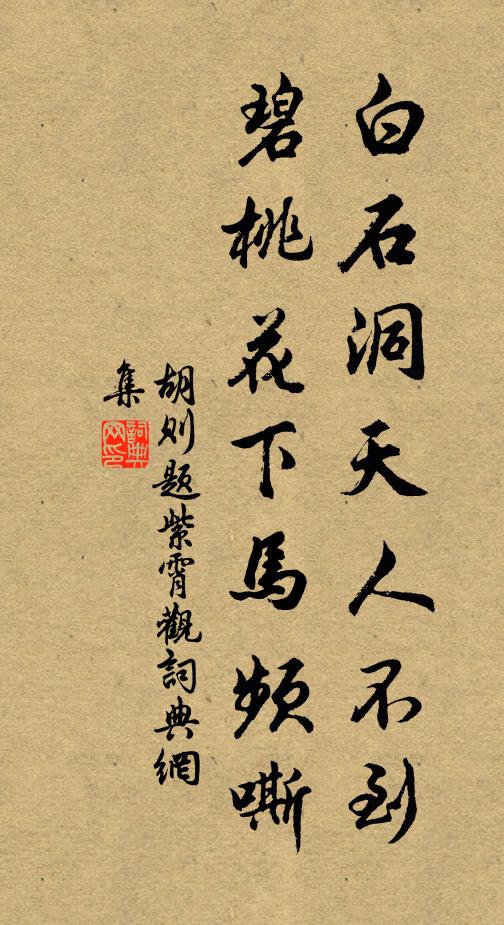 白石洞天人不到
碧桃花下馬頻嘶
胡则題紫霄觀詞典網
集
詞典網印